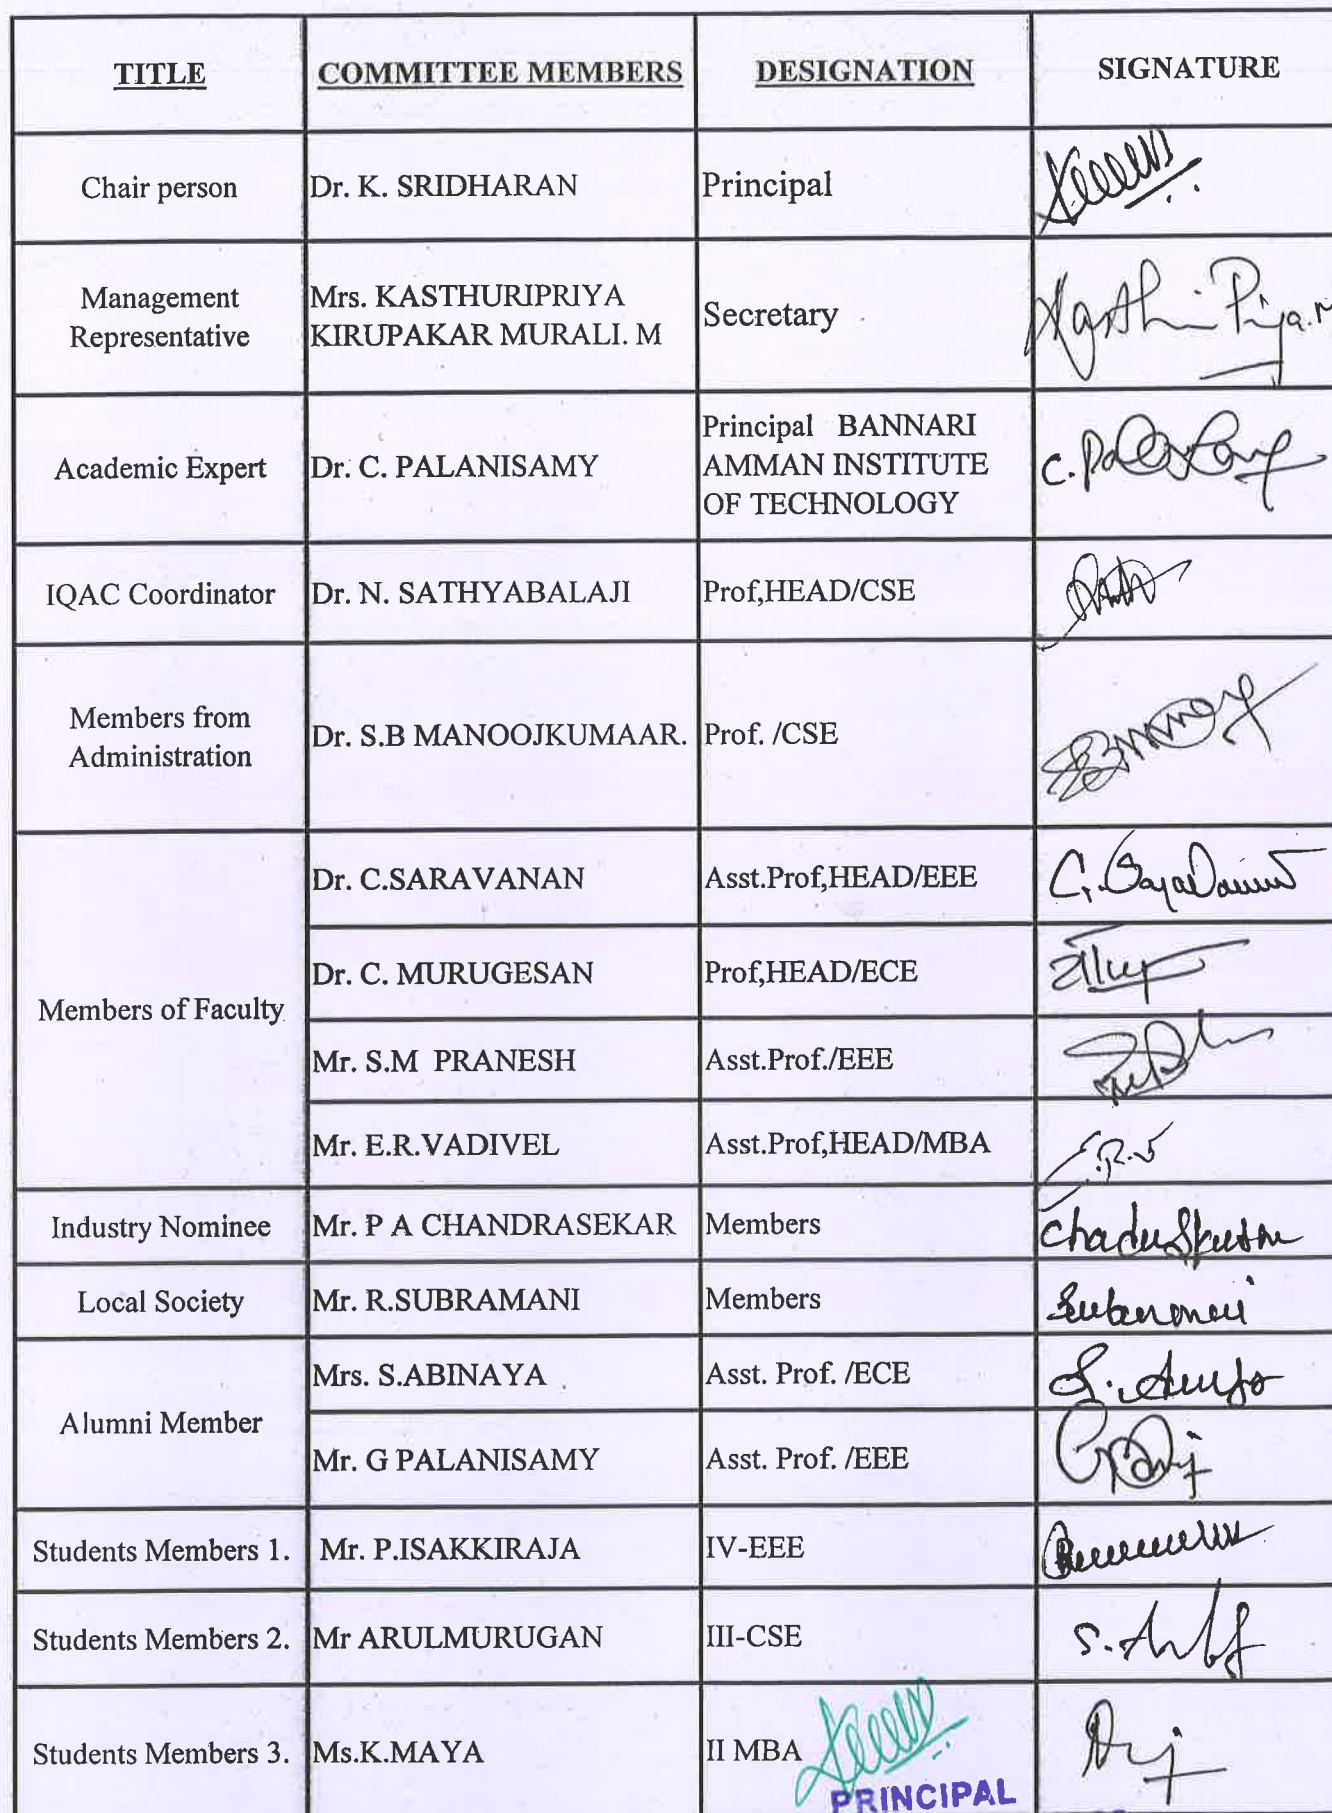 TITLE COMMITTEE MEMBERS DESIGNATION SIGNATURE
Chair person Dr. K. SRIDHARAN Principal
Management Representative Mrs. KASTHURIPRIYA KIRUPAKAR MURALI. M Secretary
Academic Expert Dr. C. PALANISAMY Principal BANNARI AMMAN INSTITUTE OF TECHNOLOGY
IQAC Coordinator Dr. N. SATHYABALAJI Prof,HEAD/CSE
Members from Administration Dr. S.B MANOOJKUMAAR. Prof. /CSE
Members of Faculty
Dr. C.SARAVANAN Asst.Prof,HEAD/EEE
Dr. C. MURUGESAN Prof,HEAD/ECE
Mr. S.M PRANESH Asst.Prof./EEE
Mr. E.R.VADIVEL Asst.Prof,HEAD/MBA
Industry Nominee Mr. P A CHANDRASEKAR Members
Local Society Mr. R.SUBRAMANI Members
Alumni Member
Mrs. S.ABINAYA Asst. Prof. /ECE
Mr. G PALANISAMY Asst. Prof. /EEE
Students Members 1. Mr. P.ISAKKIRAJA IV-EEE
Students Members 2. Mr ARULMURUGAN III-CSE
Students Members 3. Ms.K.MAYA II MBA
PRINCIPAL